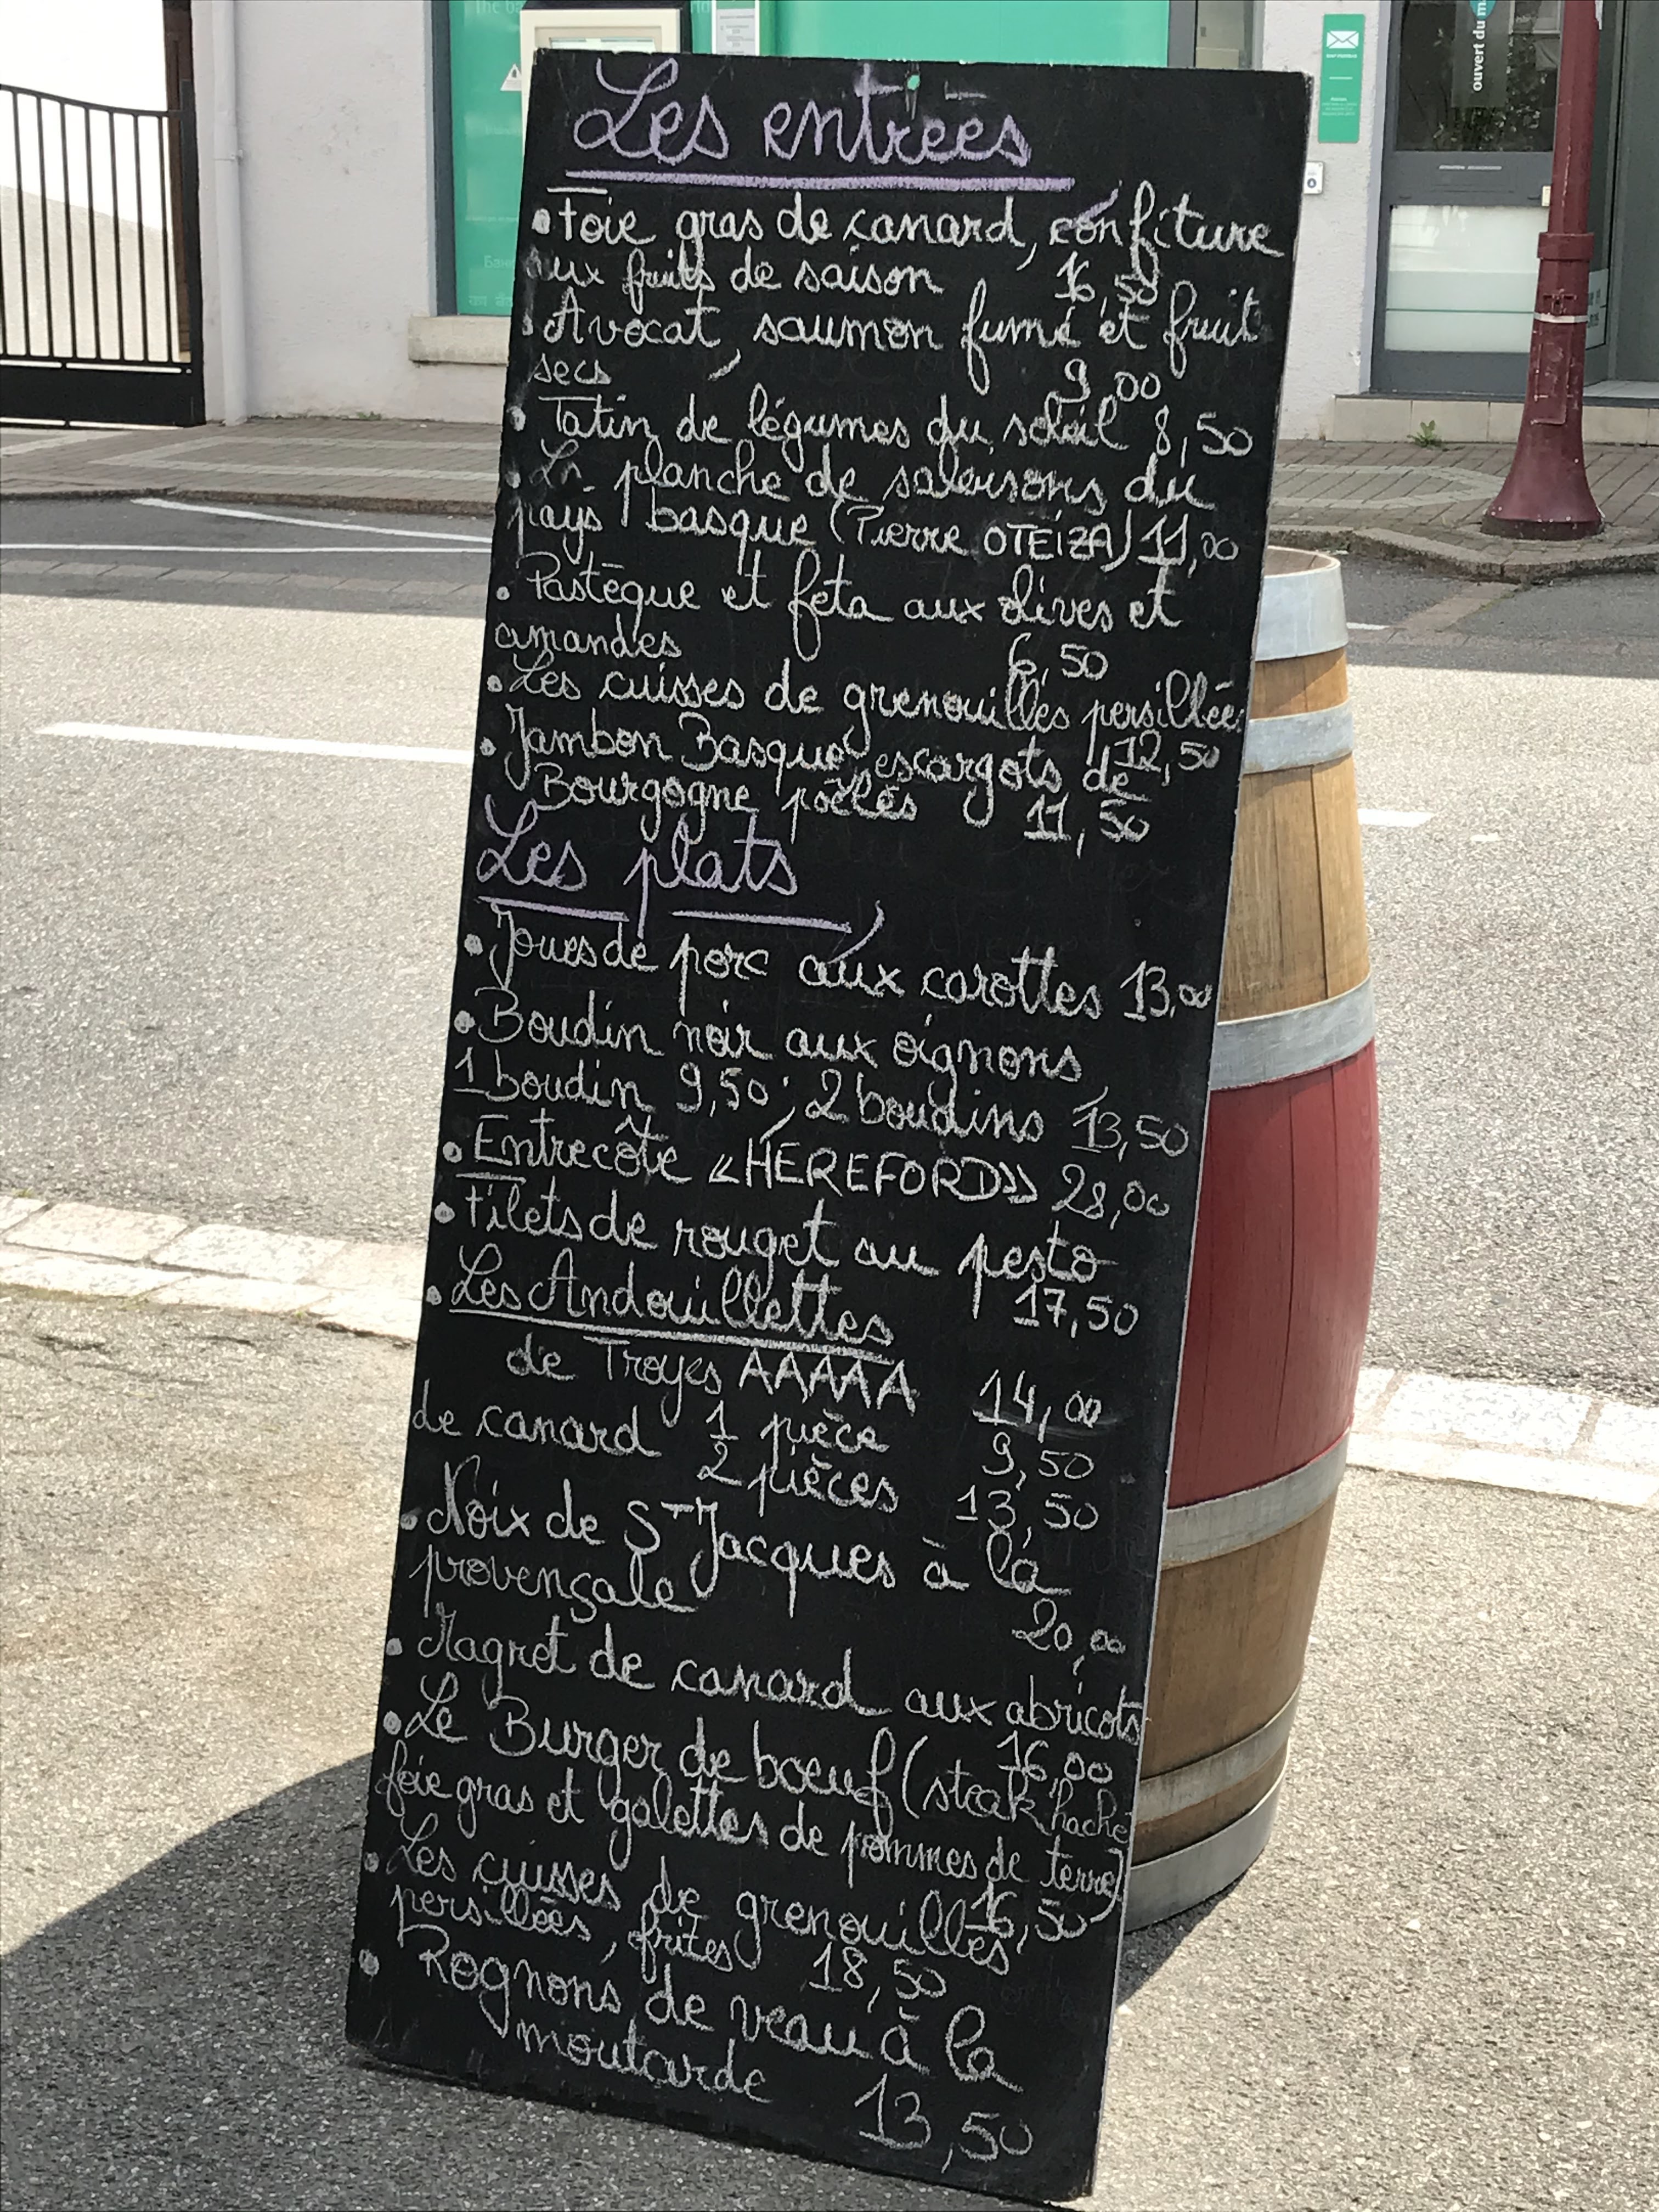 Les entrées
• Foie gras de canard, confiture
aux fruits de saison 16,50
• Avocat, saumon fumé et fruit
secs 9,00
• Tatin de légumes du soleil 8,50
• La planche de salaisons du
pays basque (Pierre OTEÏZA) 11,00
• Pastèque et feta aux olives et
amandes 6,50
• Les cuisses de grenouilles persillées
12,50
• Jambon Basque, escargots de
Bourgogne poêlés 11,50
Les plats
• Joues de porc aux carottes 13,00
• Boudin noir aux oignons
1 boudin 9,50 ; 2 boudins 13,50
• Entrecôte «HÉREFORD» 28,00
• Filets de rouget au pesto
17,50
• Les Andouillettes
de Troyes AAAAA 14,00
de canard 1 pièce 9,50
2 pièces 13,50
• Noix de St Jacques à la
provençale 20,00
• Magret de canard aux abricots
16,00
• Le Burger de boeuf (steak haché
foie gras et galettes de pommes de terre)
16,50
• Les cuisses de grenouilles
persillées, frites 18,50
• Rognons de veau à la
moutarde 13,50
ouvert du m